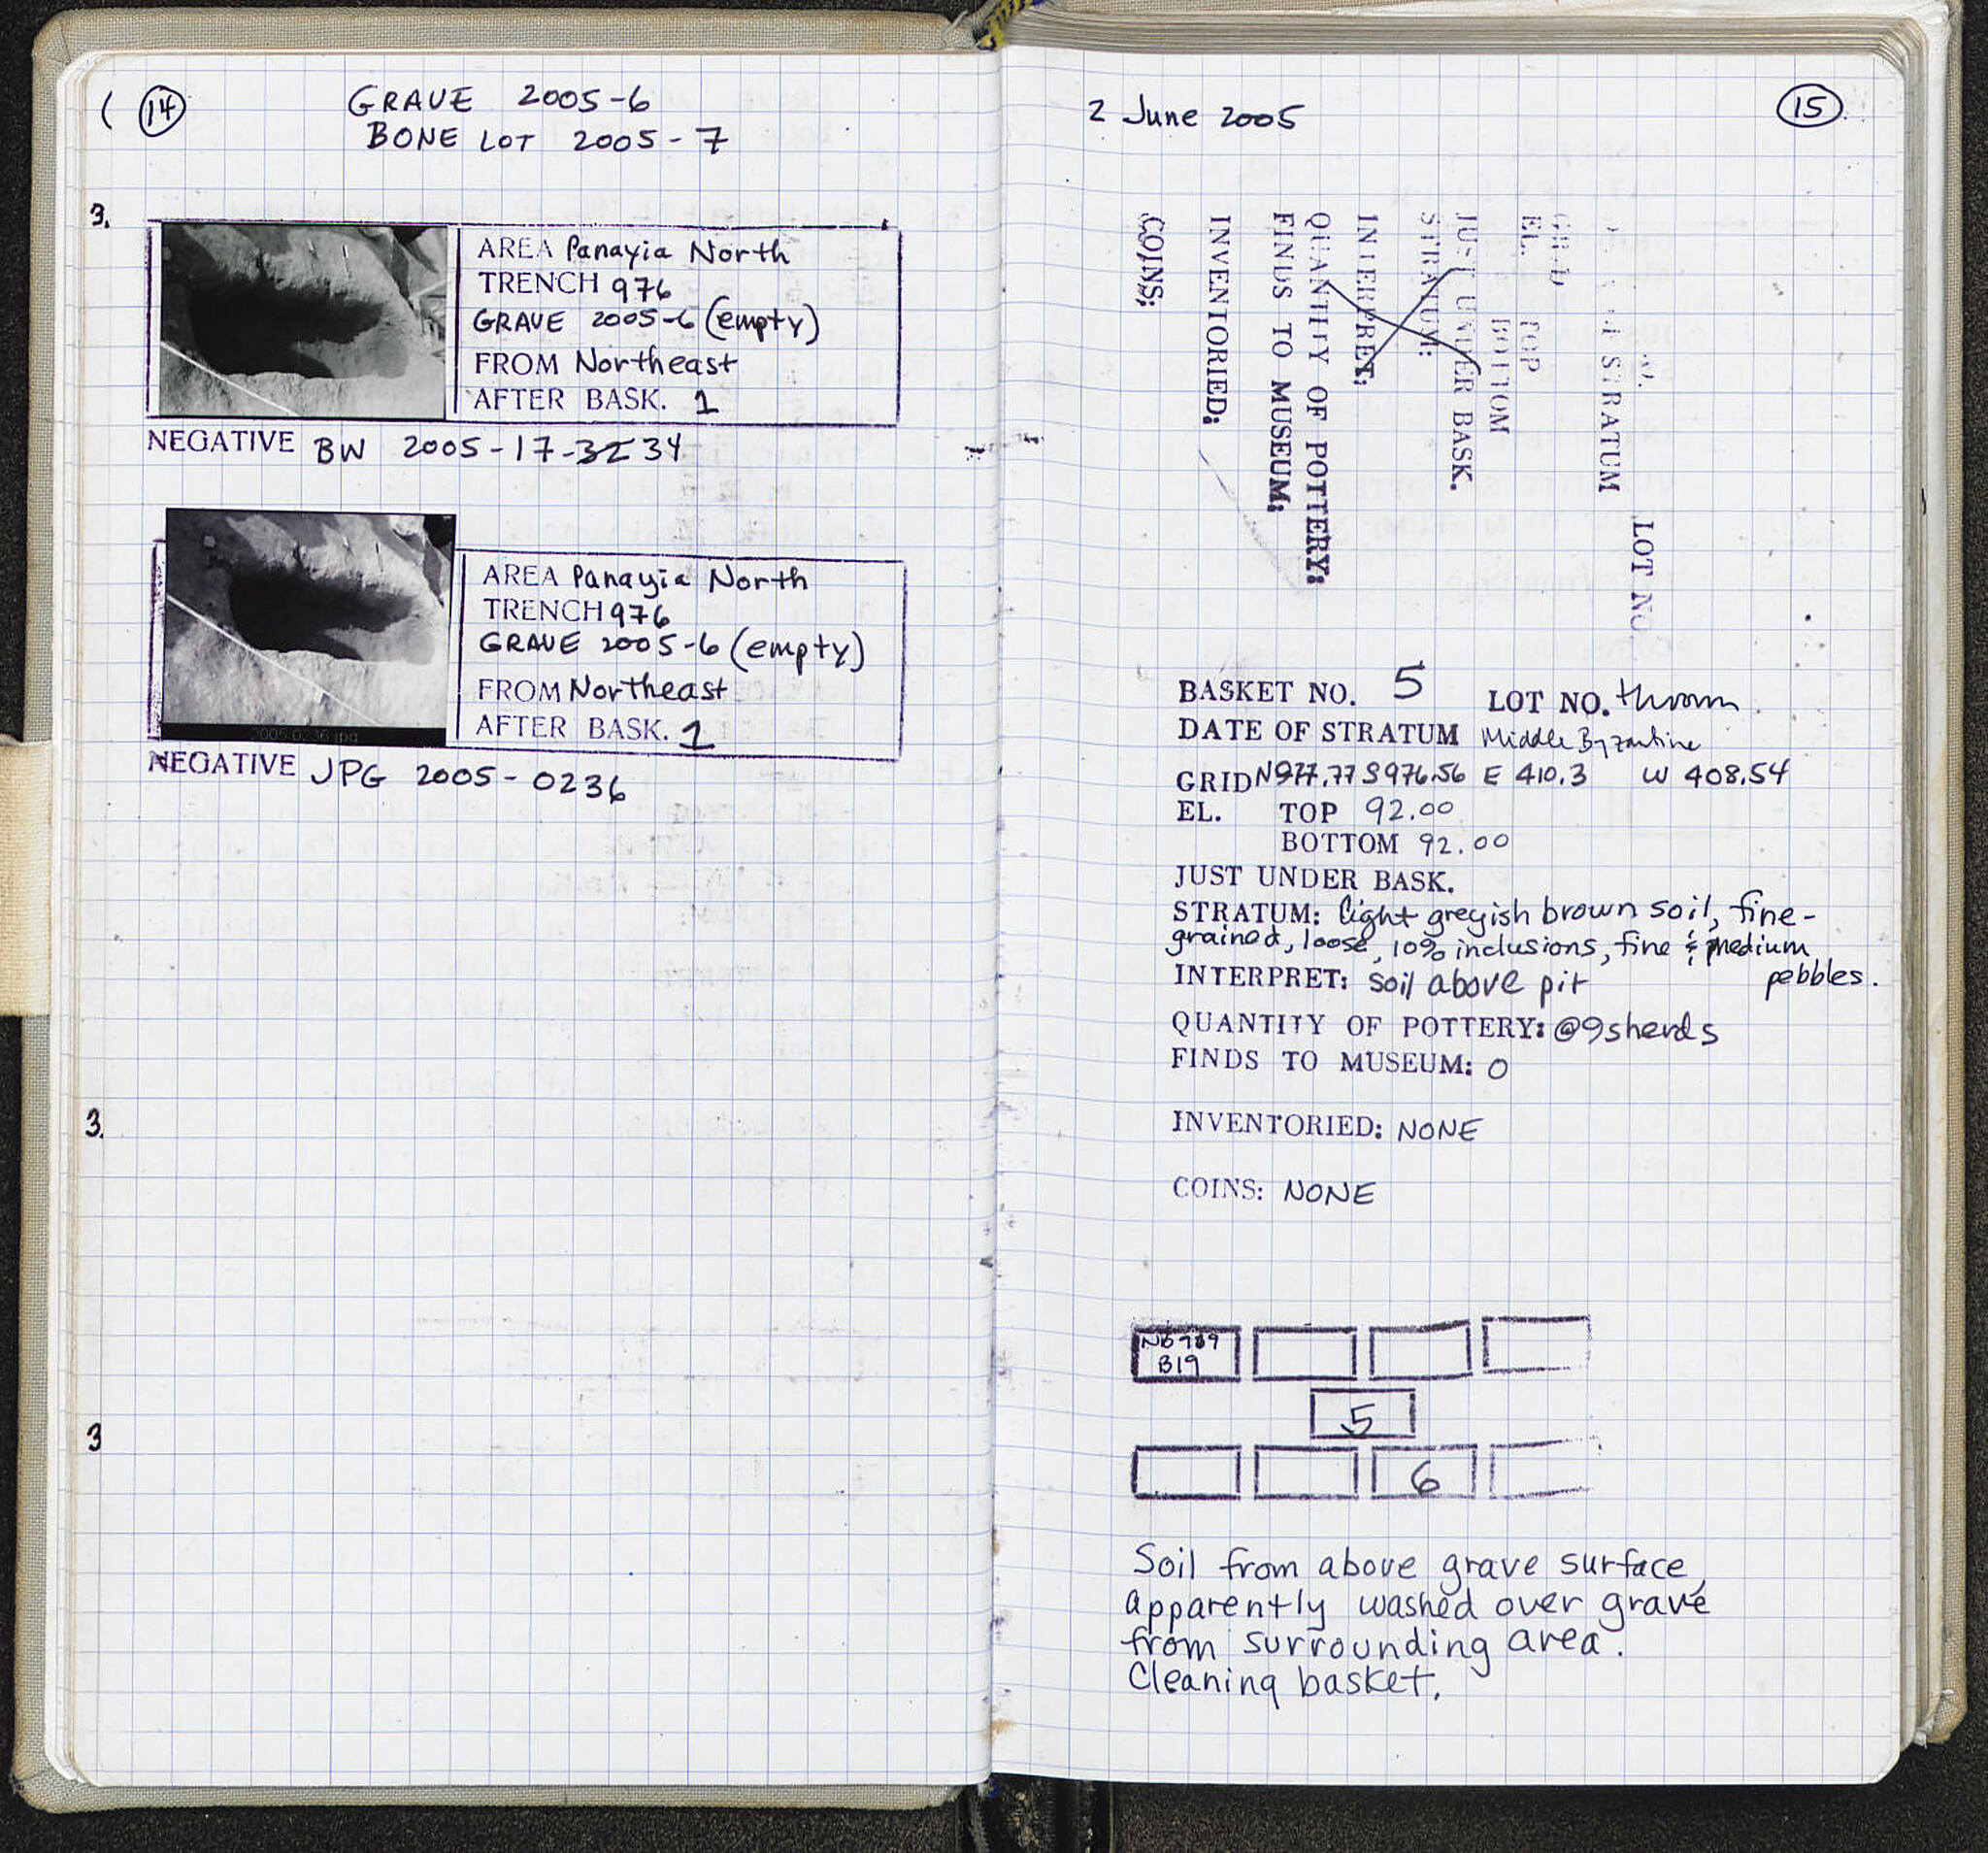 14
GRAVE 2005-6
BONE LOT 2005-7
3.
AREA Panayia North
TRENCH 976
GRAVE 2005-6 (empty)
FROM Northeast
AFTER BASK. 1
NEGATIVE BW 2005-17-32 34
AREA Panayia North
TRENCH 976
GRAVE 2005-6 (empty)
FROM Northeast
AFTER BASK. 1
2005 0236 jpg
NEGATIVE JPG 2005-0236
3.
3
2 June 2005
15
LOT NO.
STRATUM
EL. TOP
BOTTOM
JUST UNDER BASK.
STRATUM:
INTERPRET:
QUANTITY OF POTTERY:
FINDS TO MUSEUM:
INVENTORIED:
COINS:
BASKET NO. 5 LOT NO. thrown
DATE OF STRATUM Middle Byzantine
GRID N977.77 S976.56 E 410.3 W 408.54
EL. TOP 92.00
BOTTOM 92.00
JUST UNDER BASK.
STRATUM: light greyish brown soil, fine-
grained, loose, 10% inclusions, fine & medium
pebbles.
INTERPRET: soil above pit
QUANTITY OF POTTERY: @9sherds
FINDS TO MUSEUM: 0
INVENTORIED: NONE
COINS: NONE
B19
5
6
Soil from above grave surface,
apparently washed over grave
from surrounding area.
Cleaning basket.